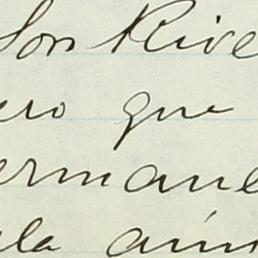 Son Rive
ero que
ermane
ela aún